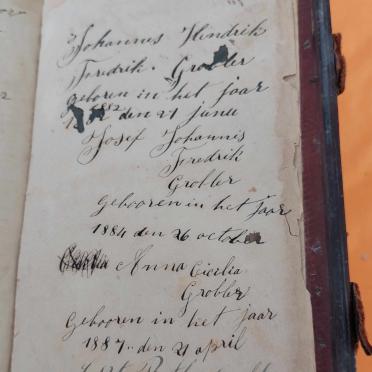 Johannes Hendrik
Fredrik. Grobler
geboren in het jaar
1882 den 21 Junie
Josef Johannis
Fredrik
Grobler
Gebooren in het Jaar
1884 den 26 october
Anna Ciorlia
Grobler
Gebooren in het jaar
1887 .. den 21 april